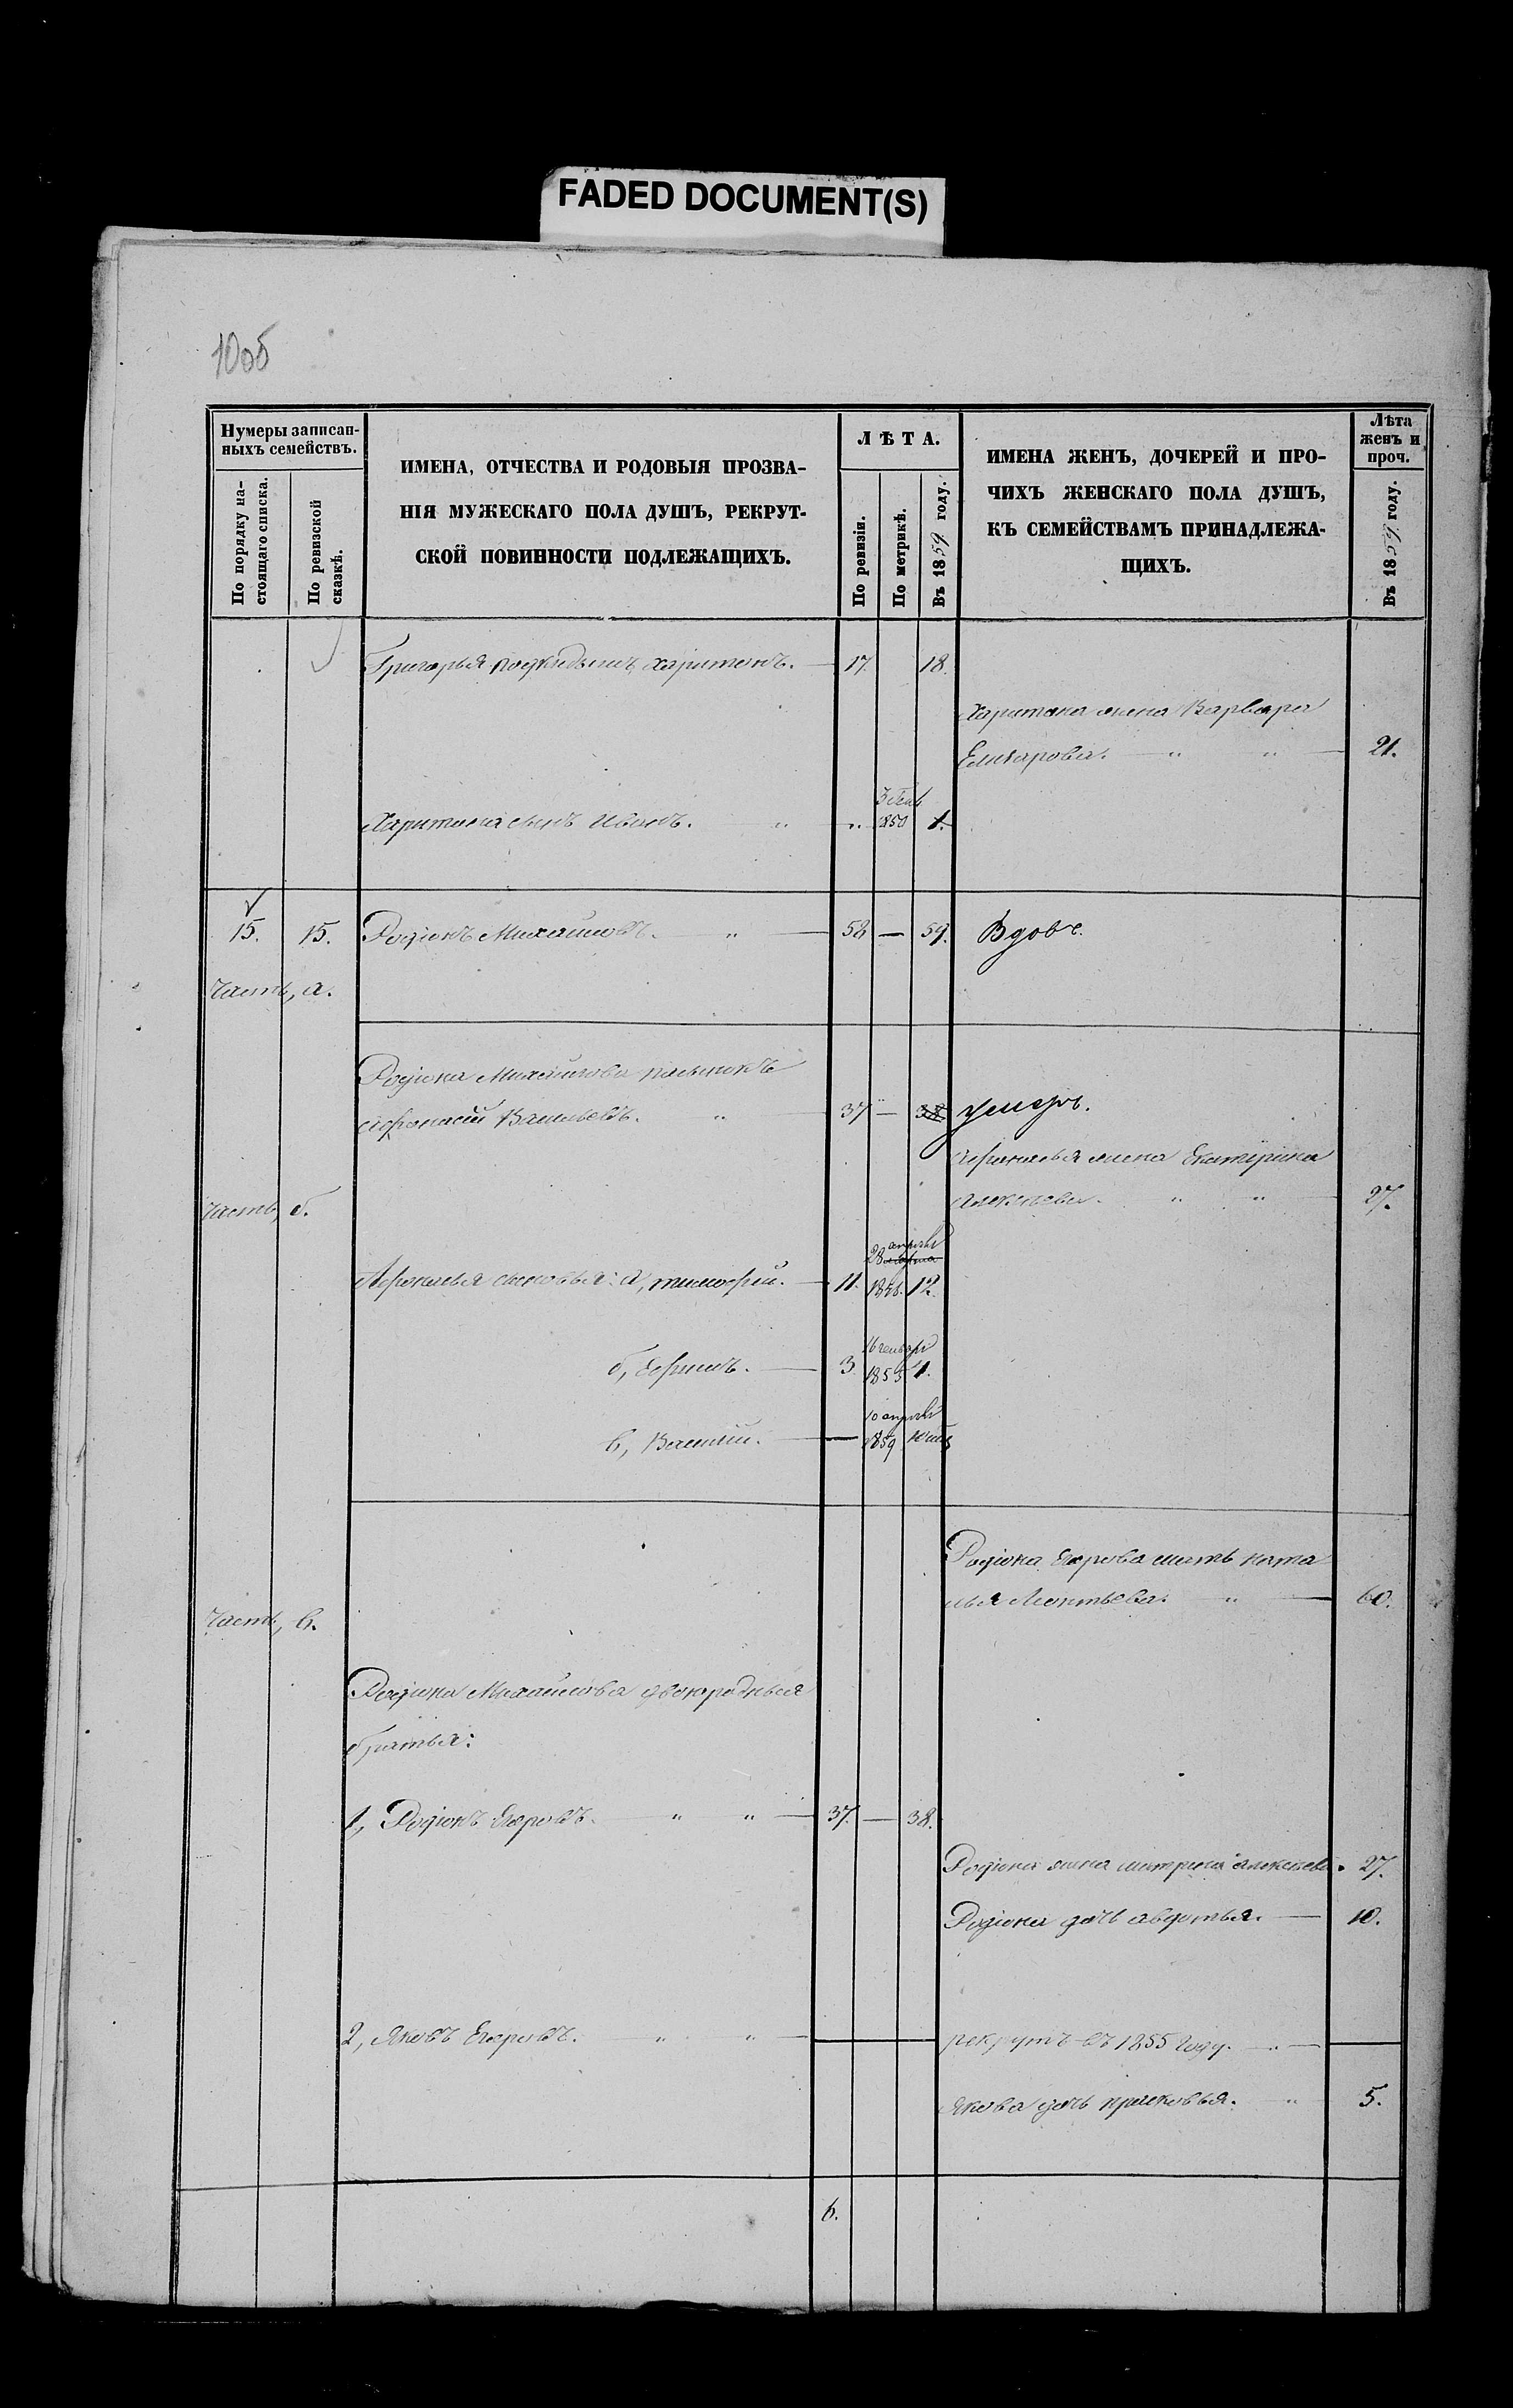 FADED DOCUMENT(S)
10об
Нумеры записан-
ныхъ семействъ.
По порядку на-
стоящаго списка.
По ревизской
сказкѣ.
ИМЕНА, ОТЧЕСТВА И РОДОВЫЯ ПРОЗВА-
НІЯ МУЖЕСКАГО ПОЛА ДУШЪ, РЕКРУТ-
СКОЙ ПОВИННОСТИ ПОДЛЕЖАЩИХЪ.
ЛѢТА.
По ревизіи.
По метрикѣ.
Въ 1859 году.
ИМЕНА ЖЕНЪ, ДОЧЕРЕЙ И ПРО-
ЧИХЪ ЖЕНСКАГО ПОЛА ДУШЪ,
КЪ СЕМЕЙСТВАМЪ ПРИНАДЛЕЖА-
ЩИХЪ.
Лѣта
женъ и
проч.
Въ 1859 году.
Григорья подкидышъ харитонъ. — 17. 18.
Харитона жена Варвара
Елизарова. " " — 21.
Харитона сынъ Иванъ. " " 1.
15. 15. Родіонъ Михайловъ. " — 58 — 59. Вдовъ.
Часть, а.
Родіона Михайлова пасынокъ
афонасій Васильевъ. " — 37 — 38. умеръ.
Афонасья жена Екатерина
Алексѣева. " " — 27.
Часть, б.
28 апрѣля
Афонасья сыновья: а, тимофей. — 11. 12.
16 генваря
б, Ефимъ. — 3. 1855 4.
10 апрѣля
в, Василій. — 1859
Родіона Егорова мать ната
лья Леонтьева. " — 60.
Часть, в.
Родіона Михайлова двоюродныя
братья:
1, Родіонъ Егоровъ. " " — 37. — 38.
Родіона жена матрена алексѣева. 27.
Родіона дочь авдотья. — 10.
2, Яковъ Егоровъ. " " — рекрутъ въ 1855 году. " —
Якова дочь прасковья. " 5.
6.